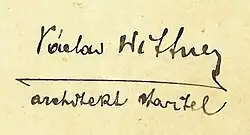 Václav Wittner
architekt stavitel